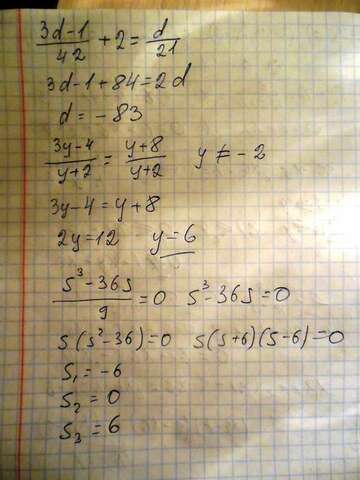 (3d-1)/42 + 2 = d/21
3d-1+84=2d
d = -83
(3y-4)/(y+2) = (y+8)/(y+2)   y ≠ -2
3y-4 = y+8
2y=12   y=6
(s³-36s)/9 = 0   s³-36s=0
s(s²-36)=0   s(s+6)(s-6)=0
s₁ = -6
s₂ = 0
s₃ = 6